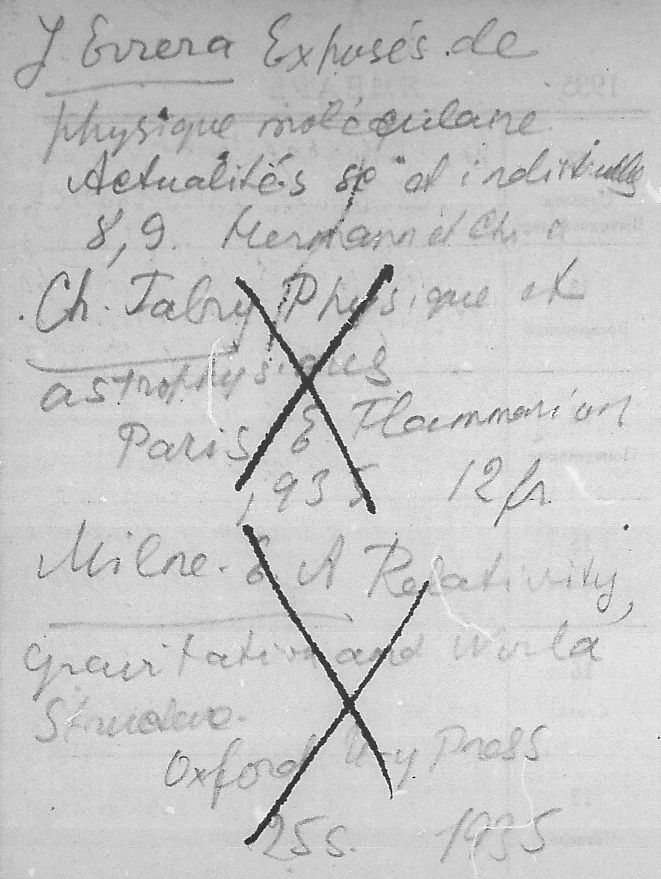 J Errera Exposés de
physique moléculaire
Actualités sc et industrielles
8, 9. Hermann et Cie
Ch. Fabry Physique et
astrophysique
Paris E Flammarion
1935 12 fr
Milne. E A Relativity,
Gravitation and World
Structure.
Oxford U-y Press
25s. 1935